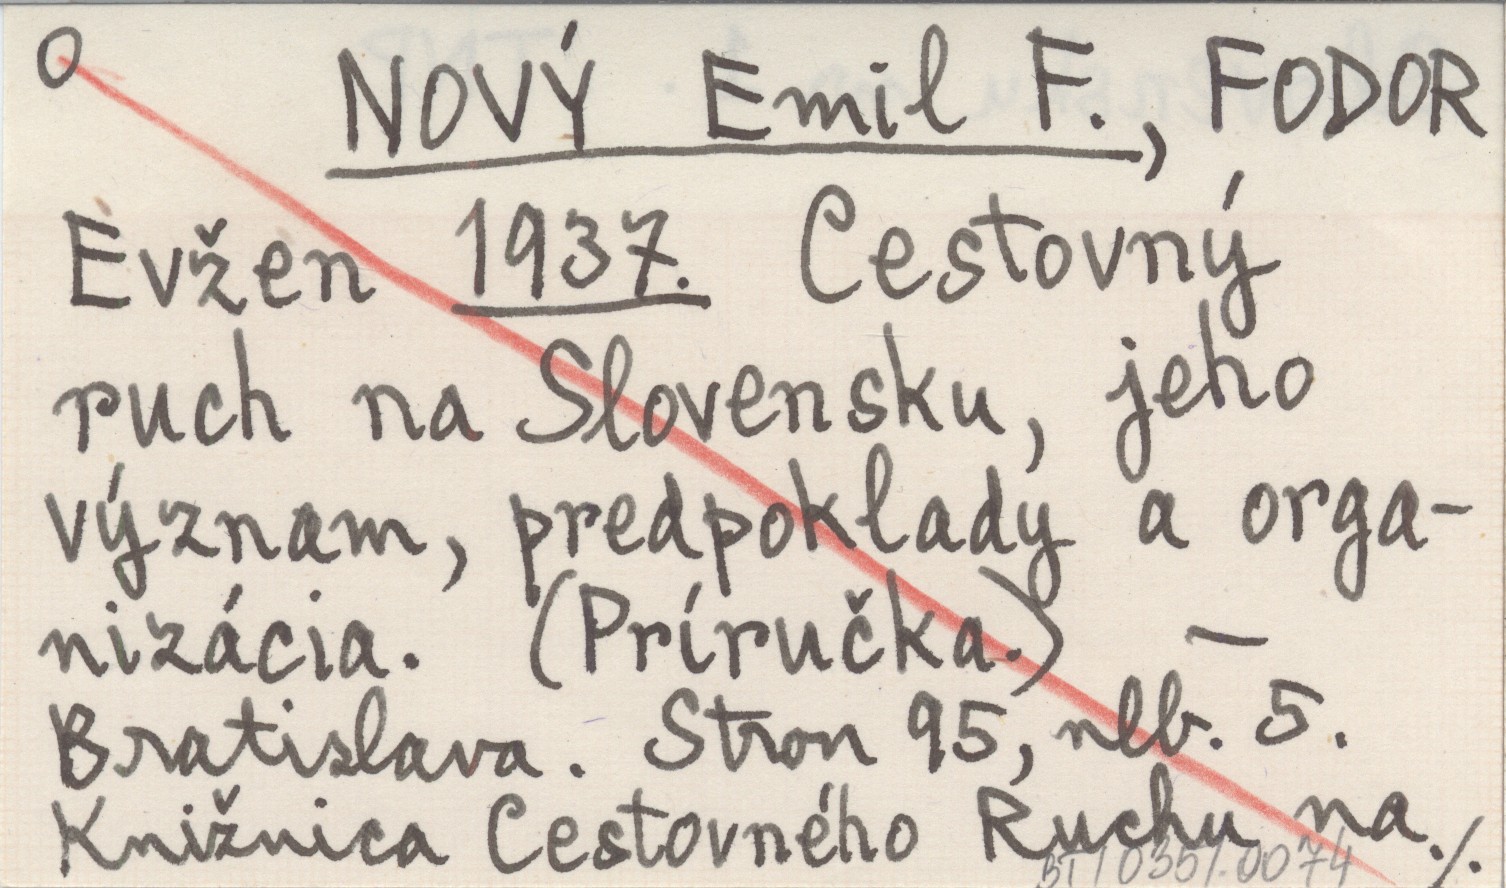 O
NOVÝ Emil F., FODOR
Evžen 1937. Cestovný
ruch na Slovensku, jeho
význam, predpoklady a orga-
nizácia. (Príručka.) —
Bratislava. Stron 95, nlb. 5.
Knižnica Cestovného Ruchu na ./.